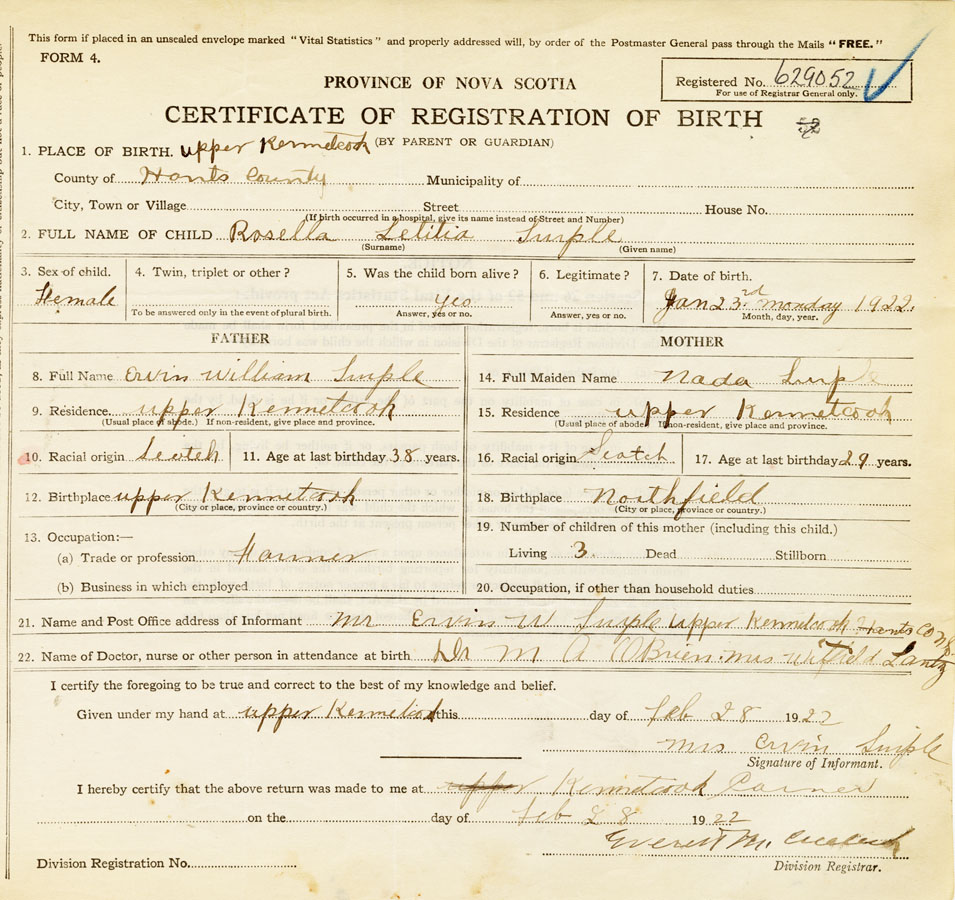 This form if placed in an unsealed envelope marked "Vital Statistics" and properly addressed will, by order of the Postmaster General pass through the Mails "FREE."
FORM 4.
Registered No. 629052
For use of Registrar General only.
PROVINCE OF NOVA SCOTIA
CERTIFICATE OF REGISTRATION OF BIRTH
(BY PARENT OR GUARDIAN)
1. PLACE OF BIRTH. Upper Kennetcook
County of Hants County Municipality of
City, Town or Village Street House No.
(If birth occurred in a hospital, give its name instead of Street and Number)
2. FULL NAME OF CHILD Rosella Letitia Surple
(Surname) (Given name)
3. Sex of child. 4. Twin, triplet or other? 5. Was the child born alive? 6. Legitimate? 7. Date of birth.
Female yes Jan 23rd Monday 1922.
To be answered only in the event of plural birth. Answer, yes or no. Answer, yes or no. Month, day, year.
FATHER MOTHER
8. Full Name Ervin William Surple 14. Full Maiden Name Nada Surple
9. Residence. upper Kennetcook 15. Residence upper Kennetcook
(Usual place of abode.) If non-resident, give place and province. (Usual place of abode.) If non-resident, give place and province.
10. Racial origin Scotch 11. Age at last birthday 38 years. 16. Racial origin Scotch 17. Age at last birthday 29 years.
12. Birthplace upper Kennetcook 18. Birthplace Northfield
(City or place, province or country.) (City or place, province or country.)
13. Occupation:— 19. Number of children of this mother (including this child.)
(a) Trade or profession Farmer Living 3. Dead Stillborn
(b) Business in which employed 20. Occupation, if other than household duties
21. Name and Post Office address of Informant Mr Ervin W Surple Upper Kennetcook Hants Co N.S.
22. Name of Doctor, nurse or other person in attendance at birth Dr M A O'Brien. Mrs Lantz
I certify the foregoing to be true and correct to the best of my knowledge and belief.
Given under my hand at upper Kennetcook this day of Feb 28 1922
Mrs Ervin Surple
Signature of Informant.
I hereby certify that the above return was made to me at upper Kennetcook Corner
on the day of Feb 28 1922
Everett M.
Division Registration No. Division Registrar.